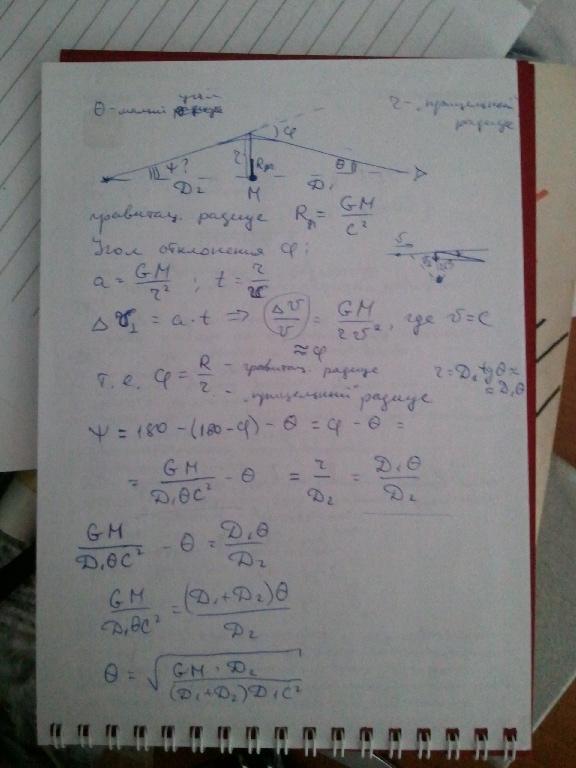 θ - малый угол
r - „прицельный" радиус
φ
ψ?
r
Rгр
θ
D₂
M
D₁
гравитац. радиус Rгр = GM/c²
Угол отклонения φ:
a = GM/r² ; t = r/v
Δv⊥ = a·t ⇒ Δv/v = GM/rv², где v=c
≈φ
т.е. φ = R/r - гравитац. радиус
- „прицельный" радиус
r = D₁ tg θ ≈
= D₁θ
ψ = 180 - (180-φ) - θ = φ - θ =
= GM/D₁θc² - θ = r/D₂ = D₁θ/D₂
GM/D₁θc² - θ = D₁θ/D₂
GM/D₁θc² = (D₁+D₂)θ/D₂
θ = √(GM·D₂/(D₁+D₂)D₁c²)